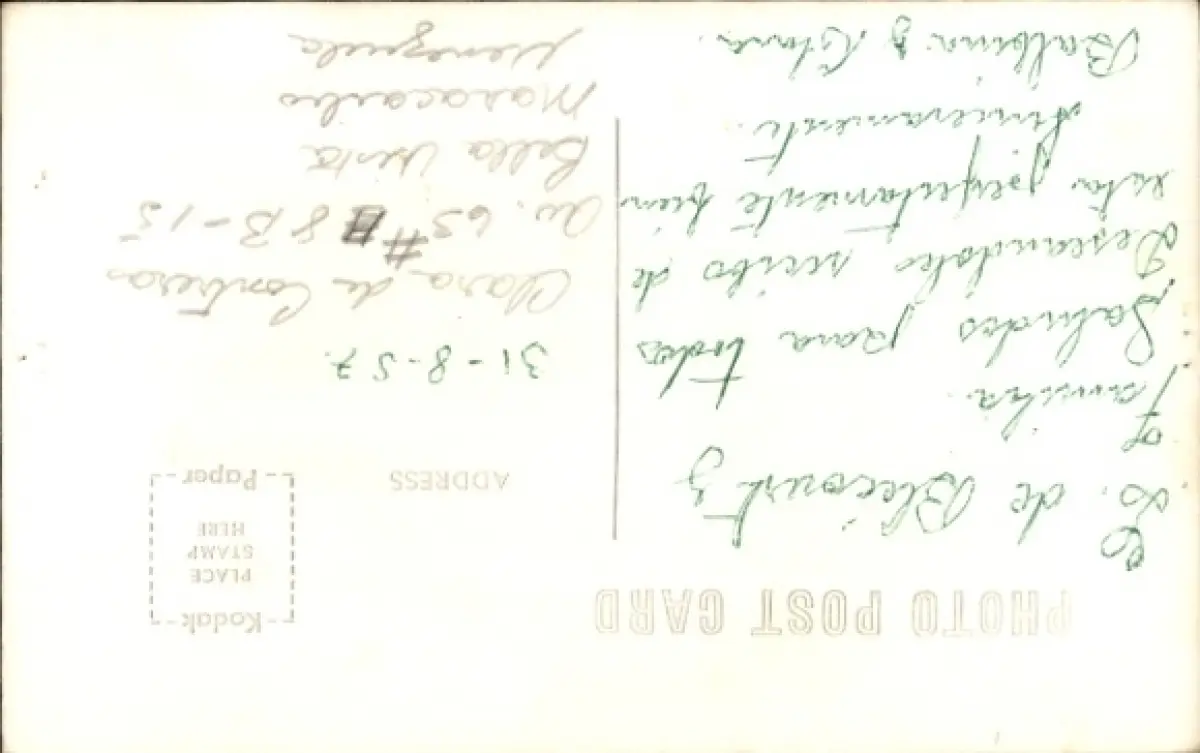 PHOTO POST CARD
S. de Blécourt y
familia.
Saludos para todos
Deseandoles recibo de
estar perfectamente bien
Sinceramente.
Balbina y Clara.
Kodak
PLACE
STAMP
HERE
Paper
ADDRESS
31-8-57.
Clara de Contreras
Av. 65 # 8B-15
Bella Vista
Maracaibo
Venezuela